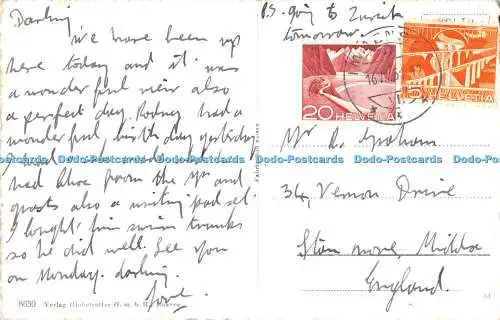 Darling
We have been up
here today and it was
a wonderful view also
a perfect day. Rodney had a
wonderful birthday yesterday
had
had
from the
guests also a writing pad set.
I bought him swim trunks
so he did well. See you
on Monday. darling.
love.
P.S. going to Zurich
tomorrow.
20
HELVETIA
15
HELVETIA
Mr R. Graham
34, Vernon Drive
Stanmore, Middx
England.
8659 Verlag Globetrotter G.m.b.H., Luzern
Dodo-Postcards Dodo-Postcards Dodo-Postcards Dodo-Postcards